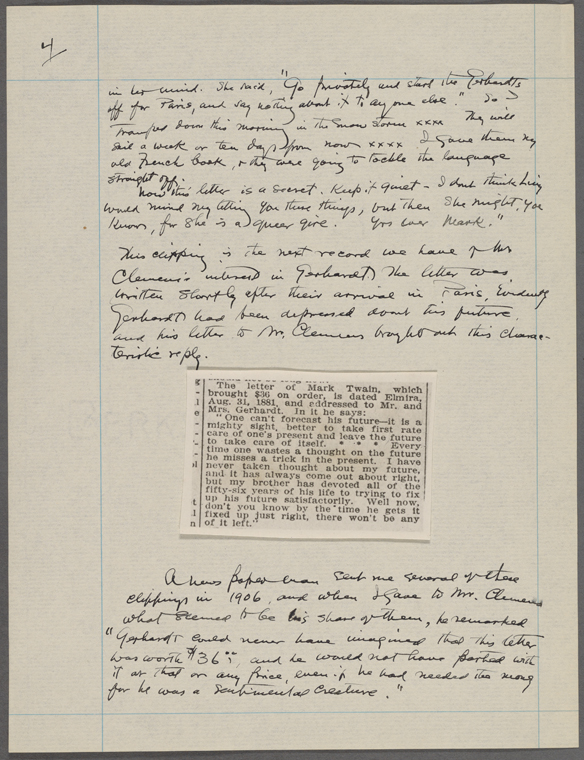 4
in her mind. She said, "Go privately and start the Gerhardts
off for Paris, and say nothing about it to any one else." So I
tramped down this morning in the snow storm xxxx They will
sail a week or ten days from now xxxx I gave them my
old French book, & they were going to tackle the language
straight off.
Now this letter is a secret. Keep it quiet – I don't think Livy
would mind my telling you these things, but then she might, you
know, for she is a queer girl. Yrs Ever Mark."
This clipping is the next record we have of Mr
Clemens's interest in Gerhardt. The letter was
written shortly after their arrival in Paris, Evidently
Gerhardt had been depressed about his future,
and his letter to Mr. Clemens brought out this charac-
teristic reply.
The letter of Mark Twain, which
brought $36 on order, is dated Elmira,
Aug. 31, 1881, and addressed to Mr. and
Mrs. Gerhardt. In it he says:
"One can't forecast his future—it is a
mighty sight, better to take first rate
care of one's present and leave the future
to take care of itself. * * * Every
time one wastes a thought on the future
he misses a trick in the present. I have
never taken thought about my future,
and it has always come out about right,
but my brother has devoted all of the
fifty-six years of his life to trying to fix
up his future satisfactorily. Well now,
don't you know by the time he gets it
fixed up just right, there won't be any
of it left."
A news paper man sent me several of these
clippings in 1906, and when I gave to Mr. Clemens
what seemed to be his share of them, he remarked
"Gerhardt could never have imagined that this letter
was worth $36, and he would not have parted with
it at that or any price, even if he had needed the money
for he was a sentimental creature."